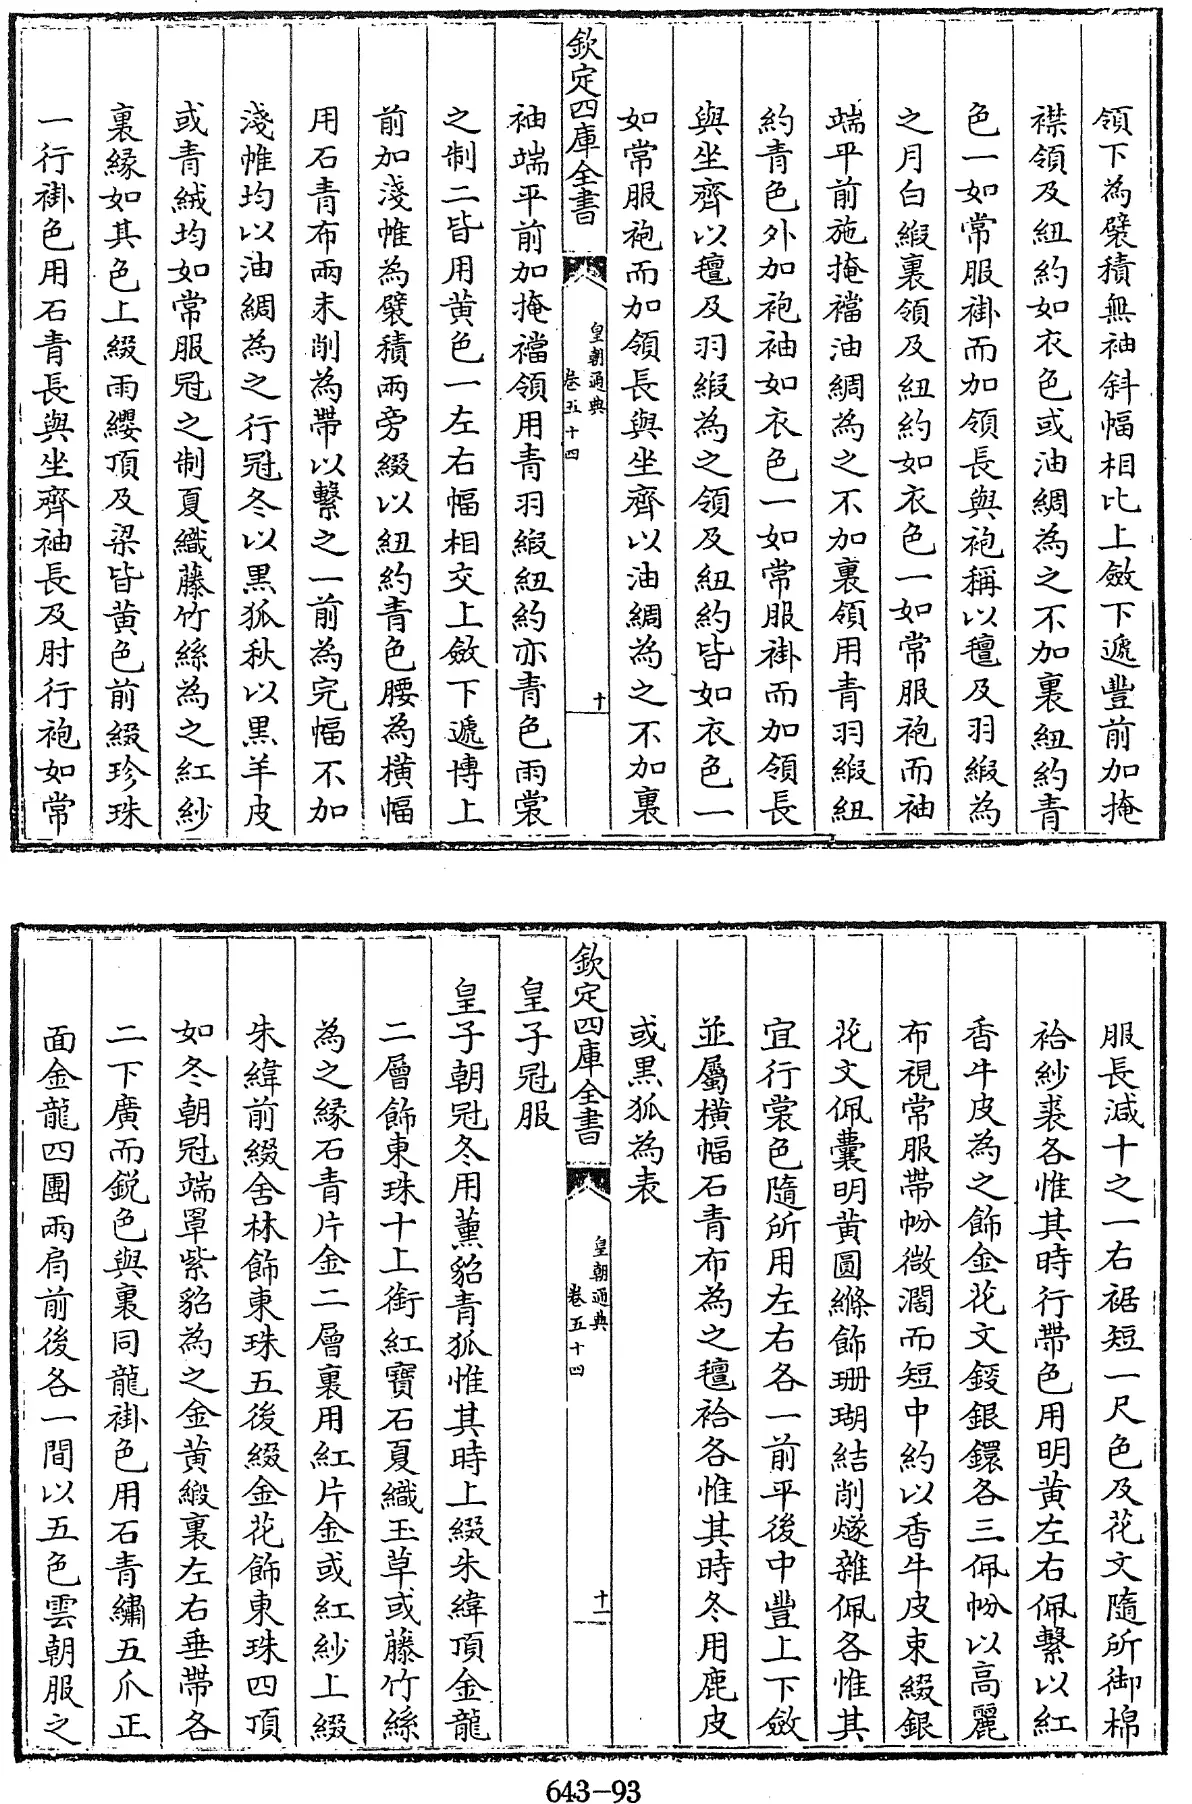 領下為襞積無袖斜幅相比上斂下遞豐前加掩
襟領及紐約如衣色或油綢為之不加裏紐約青
色一如常服褂而加領長與袍稱以氊及羽緞為
之月白緞裏領及紐約如衣色一如常服袍而袖
端平前施掩襠油綢為之不加裏領用青羽緞紐
約青色外加袍袖如衣色一如常服褂而加領長
與坐齊以氊及羽緞為之領及紐約皆如衣色一
如常服袍而加領長與坐齊以油綢為之不加裏
欽定四庫全書
皇朝通典
卷五十四
十
袖端平前加掩襠領用青羽緞紐約亦青色雨裳
之制二皆用黄色一左右幅相交上斂下遞博上
前加淺帷為襞積兩旁綴以紐約青色腰為橫幅
用石青布兩末削為帶以繫之一前為完幅不加
淺帷均以油綢為之行冠冬以黑狐秋以黑羊皮
或青絨均如常服冠之制夏織藤竹絲為之紅紗
裏緣如其色上綴雨纓頂及梁皆黄色前綴珍珠
一行褂色用石青長與坐齊袖長及肘行袍如常
服長減十之一右裾短一尺色及花文隨所御棉
袷紗裘各惟其時行帶色用明黄左右佩繫以紅
香牛皮為之飾金花文鋄銀鐶各三佩帉以高麗
布視常服帶帉微濶而短中約以香牛皮束綴銀
花文佩囊明黄圓縧飾珊瑚結削燧雜佩各惟其
宜行裳色隨所用左右各一前平後中豐上下斂
並屬橫幅石青布為之氊袷各惟其時冬用鹿皮
或黑狐為表
欽定四庫全書
皇朝通典
卷五十四
十一
皇子冠服
皇子朝冠冬用薰貂青狐惟其時上綴朱緯頂金龍
二層飾東珠十上銜紅寶石夏織玉草或藤竹絲
為之緣石青片金二層裏用紅片金或紅紗上綴
朱緯前綴舍林飾東珠五後綴金花飾東珠四頂
如冬朝冠端罩紫貂為之金黄緞裏左右垂帶各
二下廣而鋭色與裏同龍褂色用石青繡五爪正
面金龍四團兩肩前後各一間以五色雲朝服之
643-93